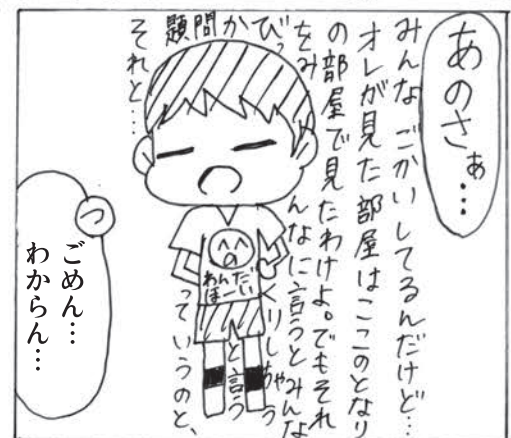 あのさぁ…
みんなごかいしてるんだけど…
オレが見た部屋はここのとなり
の部屋で見たわけよ。でもそれ
をみんなに言うとみんな
びっくりしちゃう
かと言う
問題っていうのと、
それと…
わんだ
ほーい
つ
ごめん…
わからん…